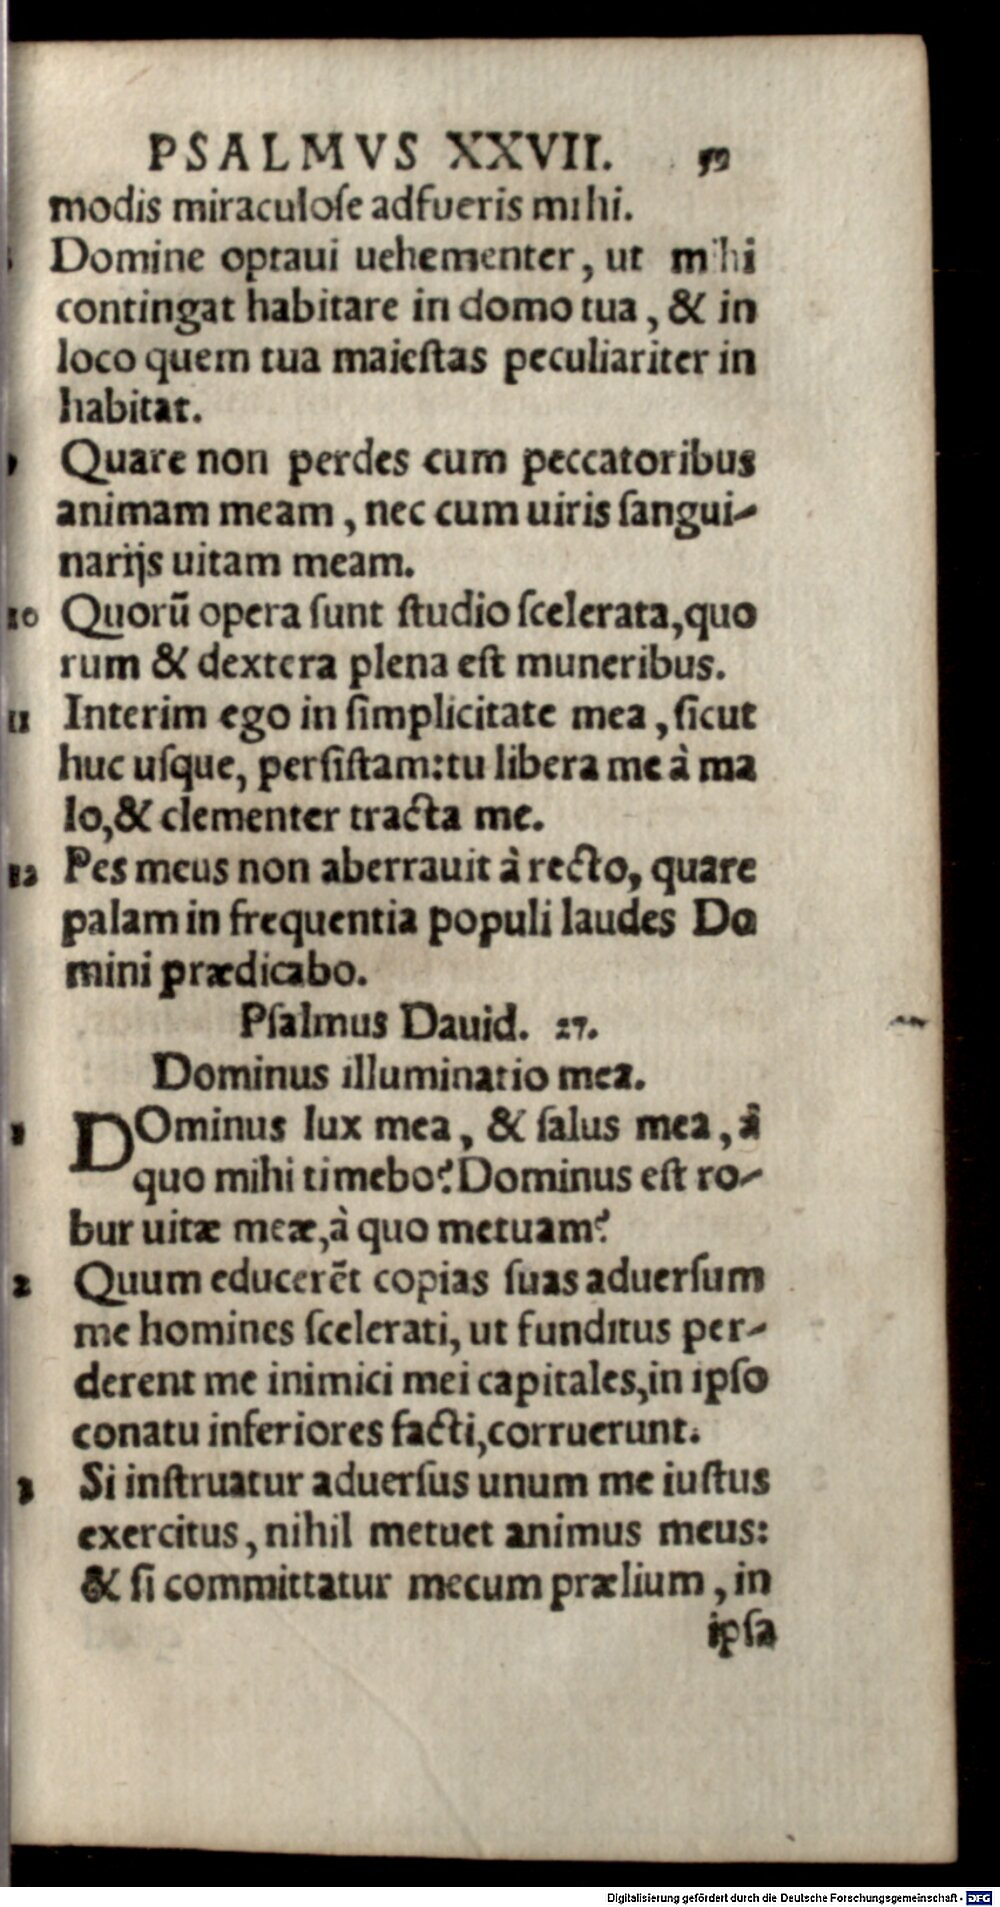 PSALMVS XXVII. 59
modis miraculoſe adfueris mihi.
Domine optaui uehementer, ut mihi
contingat habitare in domo tua, & in
loco quem tua maieſtas peculiariter in
habitat.
9 Quare non perdes cum peccatoribus
animam meam, nec cum uiris ſangui-
narijs uitam meam.
10 Quorū opera ſunt ſtudio ſcelerata, quo
rum & dextera plena eſt muneribus.
11 Interim ego in ſimplicitate mea, ſicut
huc uſque, perſiſtam: tu libera me à ma
lo, & clementer tracta me.
12 Pes meus non aberrauit à recto, quare
palam in frequentia populi laudes Do
mini prædicabo.
Pſalmus Dauid. 27.
Dominus illuminatio mea.
1 DOminus lux mea, & ſalus mea, à
quo mihi timebo? Dominus eſt ro-
bur uitæ meæ, à quo metuam?
2 Quum educerēt copias ſuas aduerſum
me homines ſcelerati, ut funditus per-
derent me inimici mei capitales, in ipſo
conatu inferiores facti, corruerunt.
3 Si inſtruatur aduerſus unum me iuſtus
exercitus, nihil metuet animus meus:
& ſi committatur mecum prælium, in
ipſa
Digitalisierung gefördert durch die Deutsche Forschungsgemeinschaft - DFG